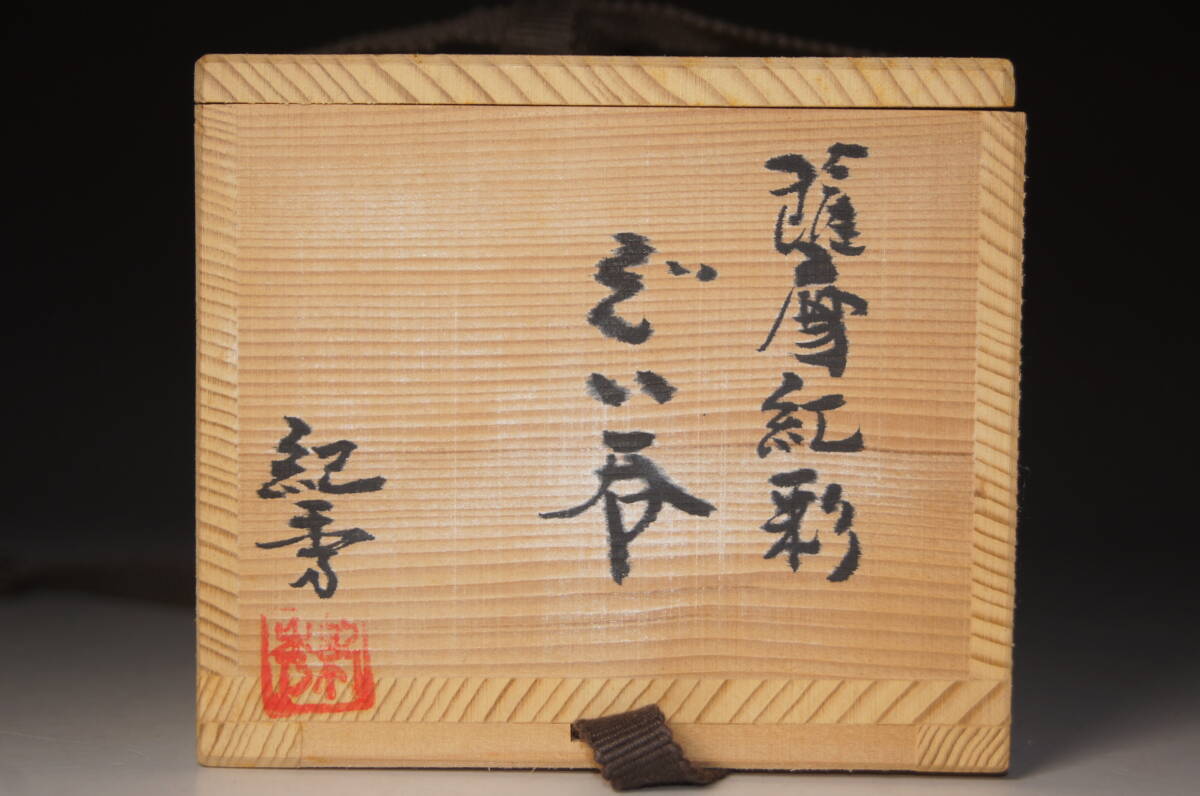 薩摩紅彩
ぐい呑
紀雪